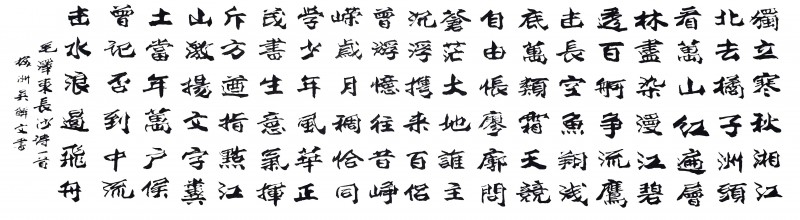 獨立寒秋湘江
北去橘子洲頭
看萬山红遍層
林盡染漫江碧
透百舸争流鷹
击長空魚翔浅
底萬類霜天競
自由悵廖廓問
蒼茫大地誰主
沉浮携来百侣
曾游憶往昔峥
嵘歲月稠恰同
學少年風華正
茂書生意氣揮
斥方遒指點江
山激揚文字糞
土當年萬户侯
曾記否到中流
击水浪遏飛舟
毛澤東長沙詩一首
洲文書